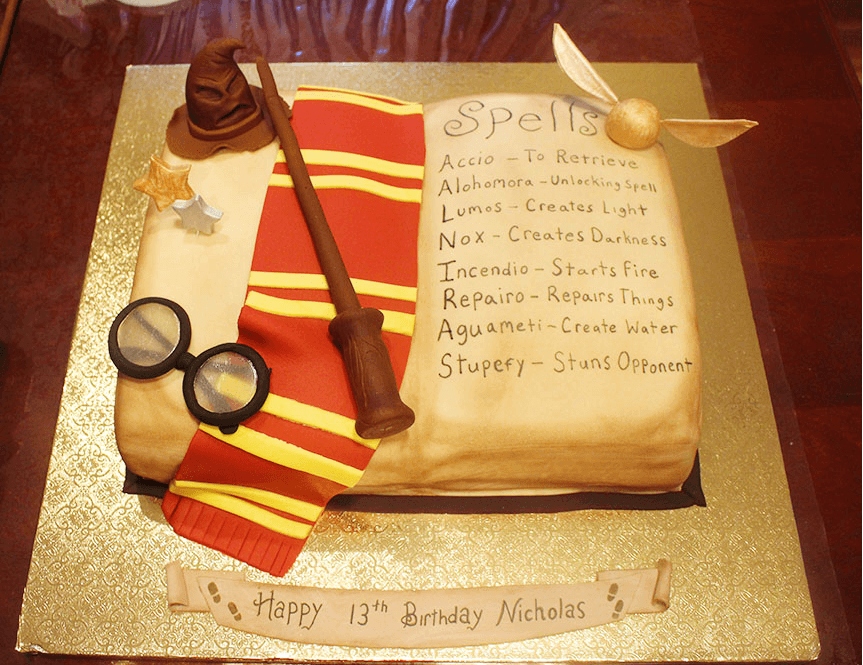 Spells
Accio – To Retrieve
Alohomora – Unlocking Spell
Lumos – Creates Light
Nox – Creates Darkness
Incendio – Starts Fire
Reparo – Repairs Things
Aguameti – Create Water
Stupefy – Stuns Opponent
Happy 13th Birthday Nicholas